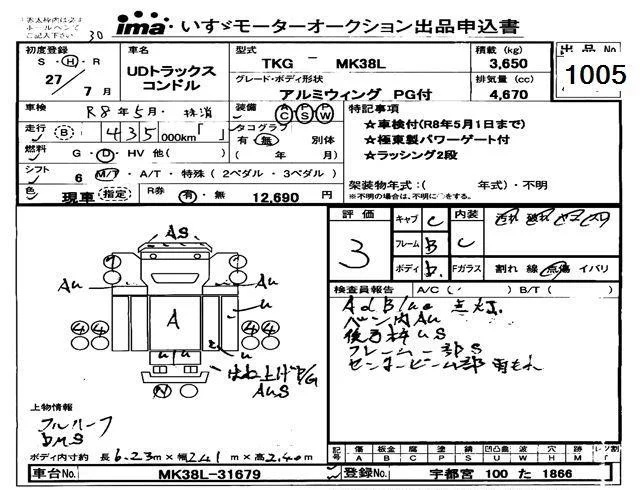 ima いすゞモーターオークション出品申込書
初度登録
S・H・R
27 / 7月
車名
UDトラックス
コンドル
型式
TKG － MK38L
グレード・ボディ形状
アルミウィング PG付
積載 (kg)
3,650
排気量 (cc)
4,670
出品No
1005
車検
R8年5月・抹消
装備
AC PS PW
走行
B 435 000km「 」
タコグラフ
有・無 別体
( 年 月)
燃料
G・D・HV 他( )
シフト
6 M/T・A/T・特殊(2ペダル・3ペダル)
色
現車 指定
R券
有・無 12,690 円
特記事項
☆車検付(R8年5月1日まで)
☆極東製パワーゲート付
☆ラッシング2段
架装物年式:( 年式)・不明
※不明の場合は、不明に○をする。
評価
3
キャブ C
フレーム B
ボディ b
内装 C
Fガラス 割れ 線 点傷 イバリ
検査員報告 A/C( ) B/T( )
AdBlue 点灯
バン内AU
後の枠US
フレーム一部S
センタービーム部 雨もれ
AS
AU
AU
A
U
U
U
U
N
はね上げP/G
AUS
上物情報
フルハーフ
DMS
ボディ内寸約 長6.23m×幅2.41m×高2.40m
記号 傷A 板金B 腐C 塗P 錆S 凹凸U 波W 穴H 欠M レンズ割
車台No. MK38L-31679
登録No. 宇都宮 100 た 1866